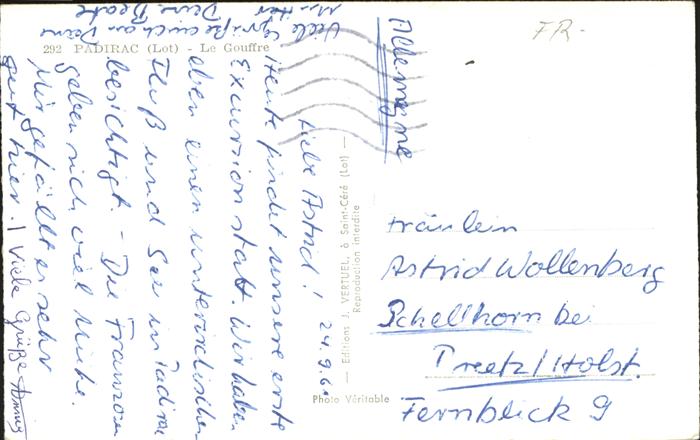 292 PADIRAC (Lot) - Le Gouffre
24.9.6
Liebe Astrid!
Heute findet unsere erste
Exkursion statt. Wir haben
eben einen unterirdischen
Fluß und See in Padirac
besichtigt. - Die Franzosen
geben sich viel Mühe.
Mir gefällt es sehr
gut hier. | Viele Grüße
Viele Grüße auch an Deine
Mutter Deine Beate
Editions J. VERTUEL, à Saint-Céré (Lot)
Reproduction interdite
Photo Véritable
FR-
Allemagne
Fräulein
Astrid Wollenberg
Schellhorn bei
Preetz/Holst.
Fernblick 9